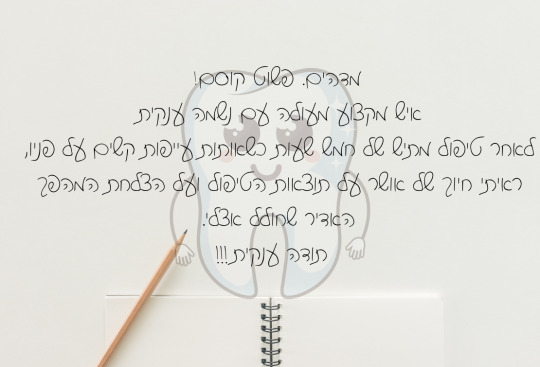 מדהים. פשוט קוסם!
איש מקצוע מעולה עם נשמה ענקית
לאחר טיפול מתיש של חמש שעות כשאותות עייפות קשים על פניו,
ראיתי חיוך של אושר על תוצאות הטיפול ועל הצלחת המהפך
האדיר שחולל אצלי.
תודה ענקית!!!